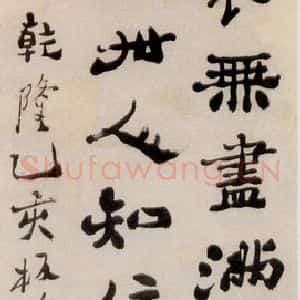 無盡滿
世人知
乾隆乙亥板
Shufawang.CN